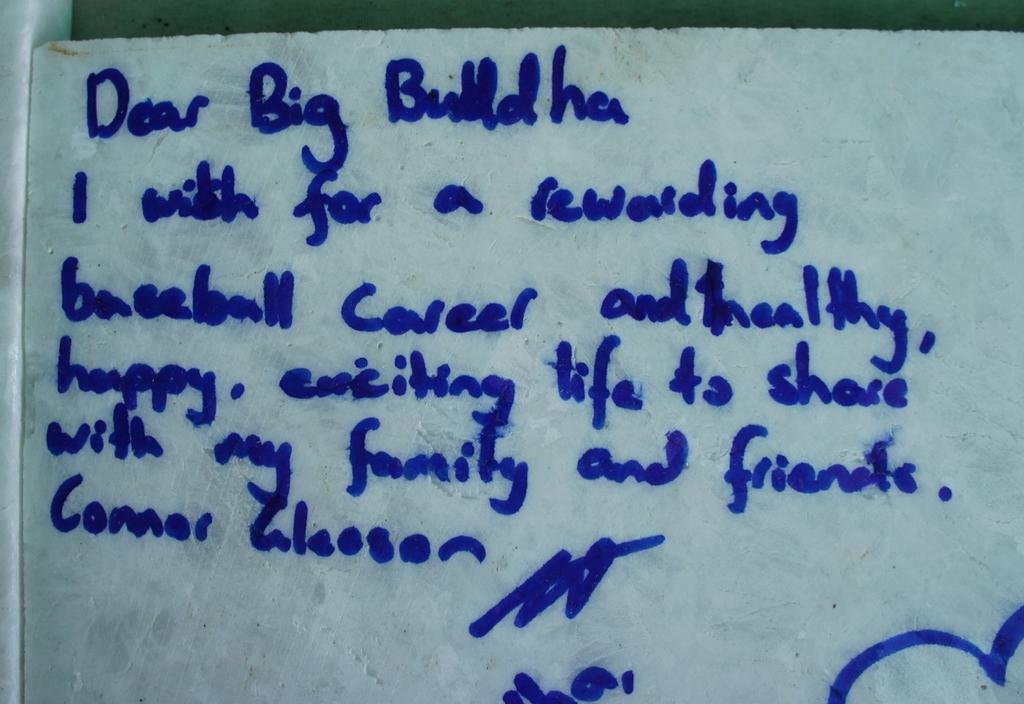 Dear Big Buddha
I wish for a rewarding
baseball career and healthy,
happy, exciting life to share
with my family and friends.
Connor Gleeson